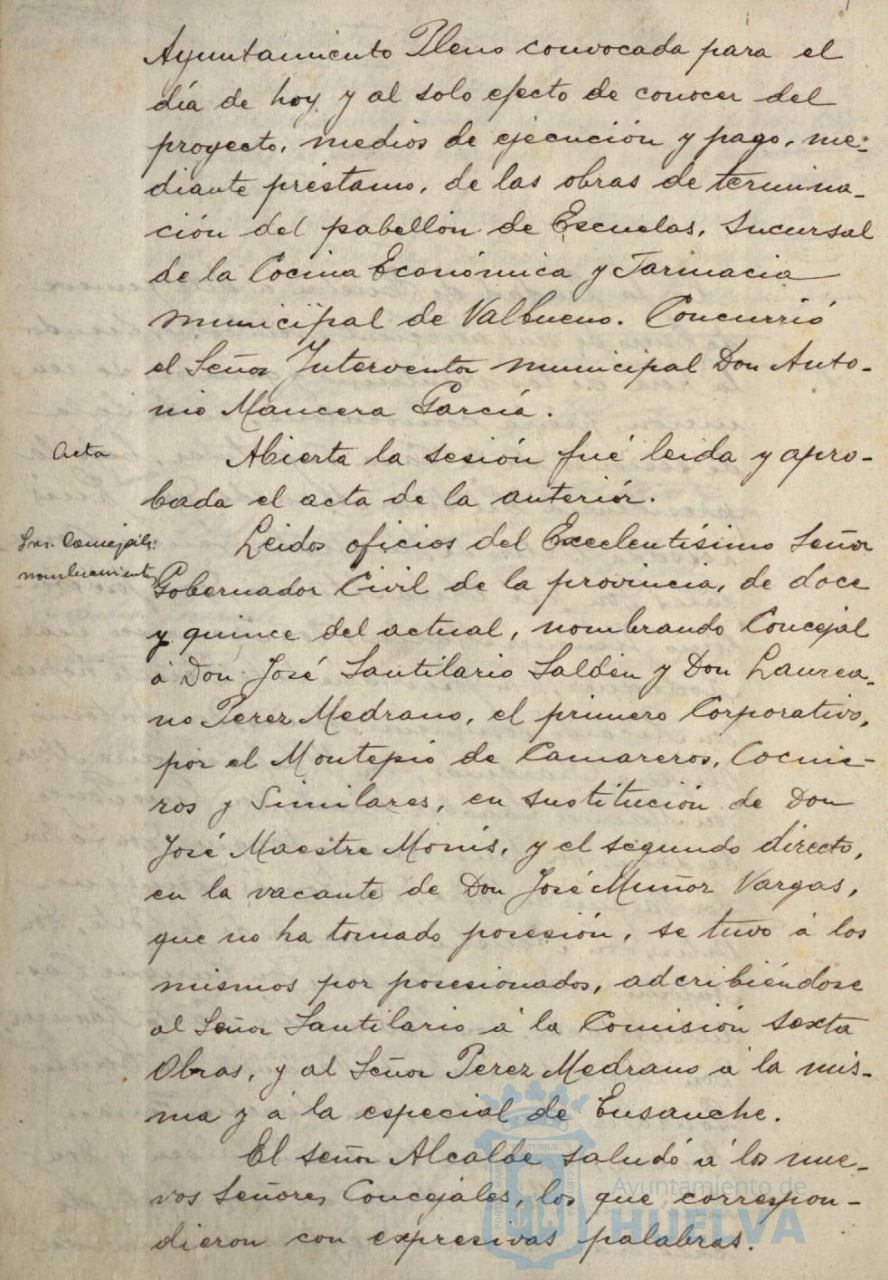 Ayuntamiento Pleno convocada para el
día de hoy y al solo efecto de conocer del
proyecto, medios de ejecución y pago, me-
diante préstamo, de las obras de termina-
ción del pabellón de Escuelas, Sucursal
de la Cocina Económica y Farmacia
municipal de Valbueno. Concurrió
el Señor Interventor municipal Don Anto-
nio Mancera García.
Acta
Abierta la sesión fué leida y apro-
bada el acta de la anterior.
Srs. Concejales:
nombramiento
Leidos oficios del Excelentísimo Señor
Gobernador Civil de la provincia, de doce
y quince del actual, nombrando Concejal
á Don José Santilario Saldén y Don Laurea-
no Perez Medrano, el primero Corporativo,
por el Montepío de Camareros, Cocine-
ros y Similares, en sustitución de Don
José Maestre Monís, y el segundo directo,
en la vacante de Don José Muñor Vargas,
que no ha tomado posesión, se tuvo á los
mismos por posesionados, adcribiéndose
al Señor Santilario á la Comisión sexta
Obras, y al Señor Perez Medrano á la mis-
ma y á la especial de Ensanche.
El señor Alcalde saludó á los nue-
vos Señores Concejales, los que correspon-
dieron con expresivas palabras.
Ayuntamiento de
HUELVA